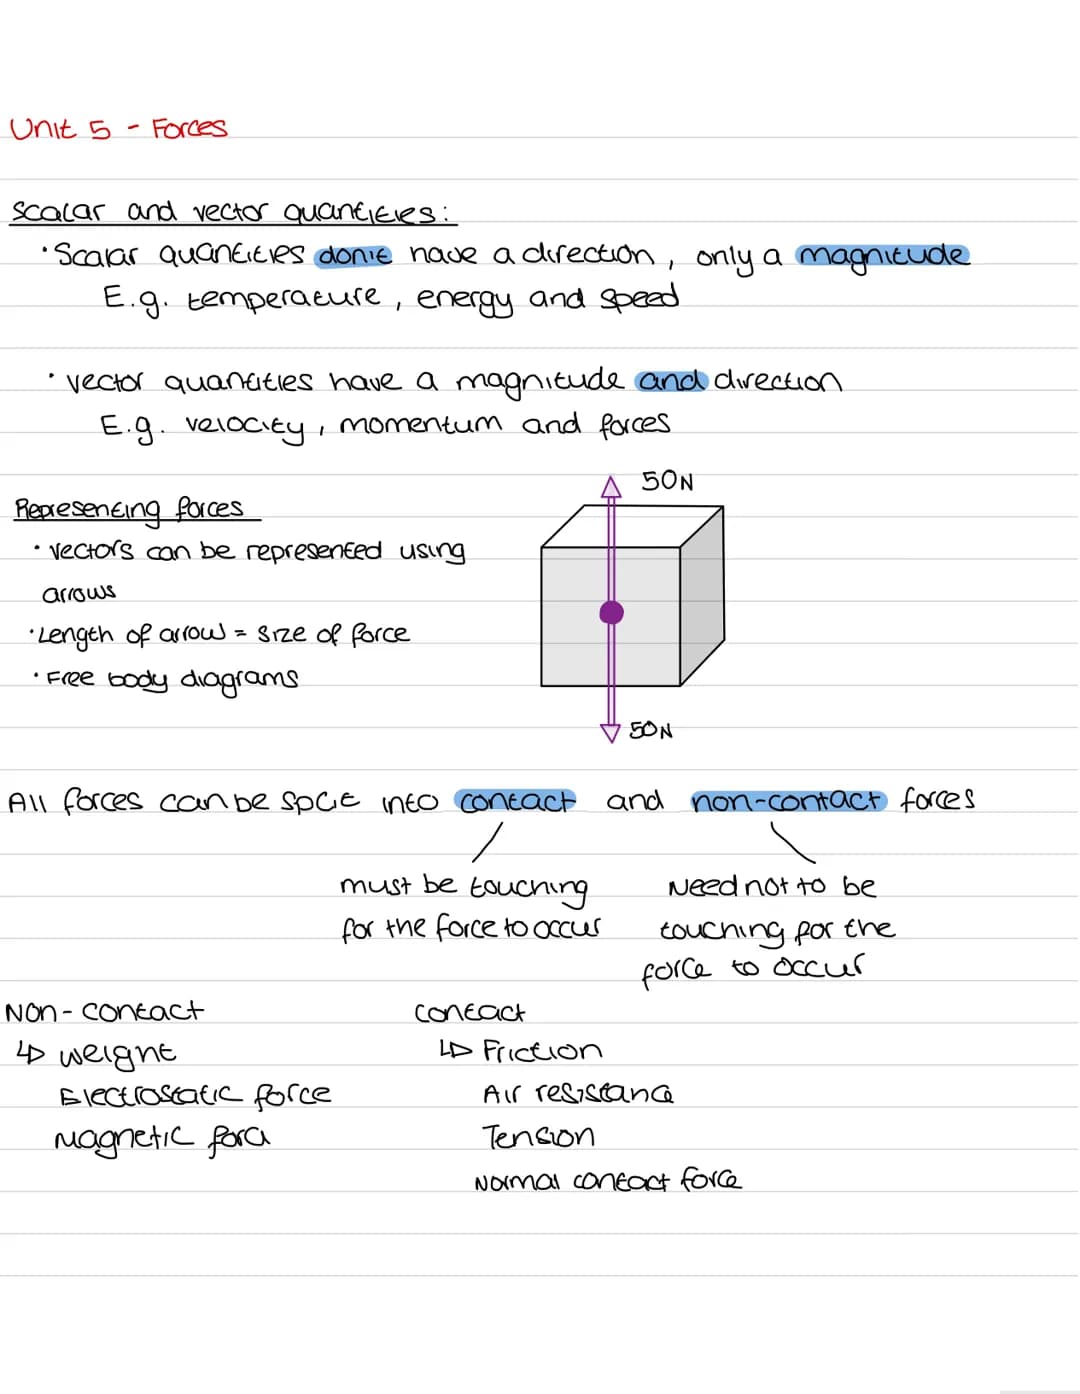 Unit 5 - Forces
Scalar and vector quantities:
• Scalar quantities don't have a direction, only a magnitude
E.g. temperature, energy and speed
• vector quantities have a magnitude and direction
E.g. velocity, momentum and forces
50N
Representing forces
• vectors can be represented using
arrows
• Length of arrow = size of force
• Free body diagrams
50N
All forces can be split into contact and non-contact forces
must be touching
for the force to occur
Need not to be
touching for the
force to occur
Non-contact
↳ weight
Electrostatic force
Magnetic force
contact
↳ Friction
Air resistance
Tension
Normal contact force